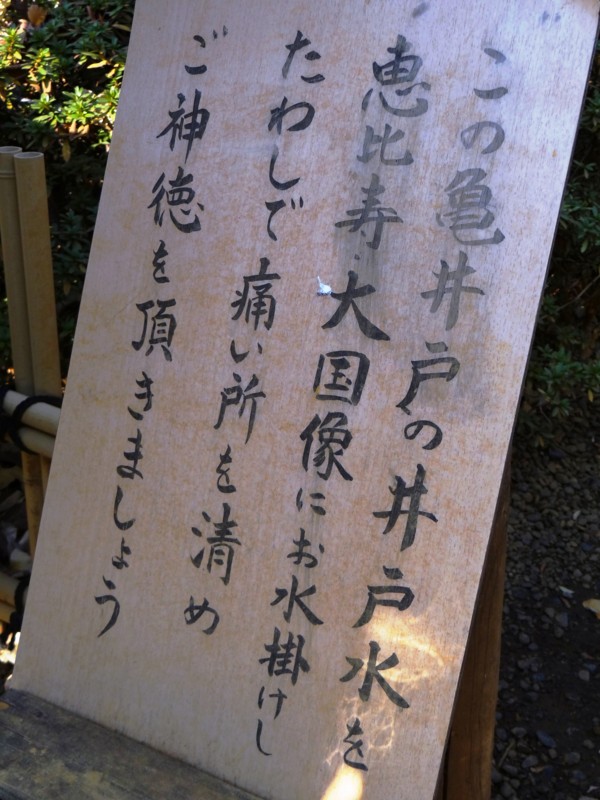 この亀井戸の井戸水を
恵比寿・大国像にお水掛けし
たわしで痛い所を清め
ご神徳を頂きましょう